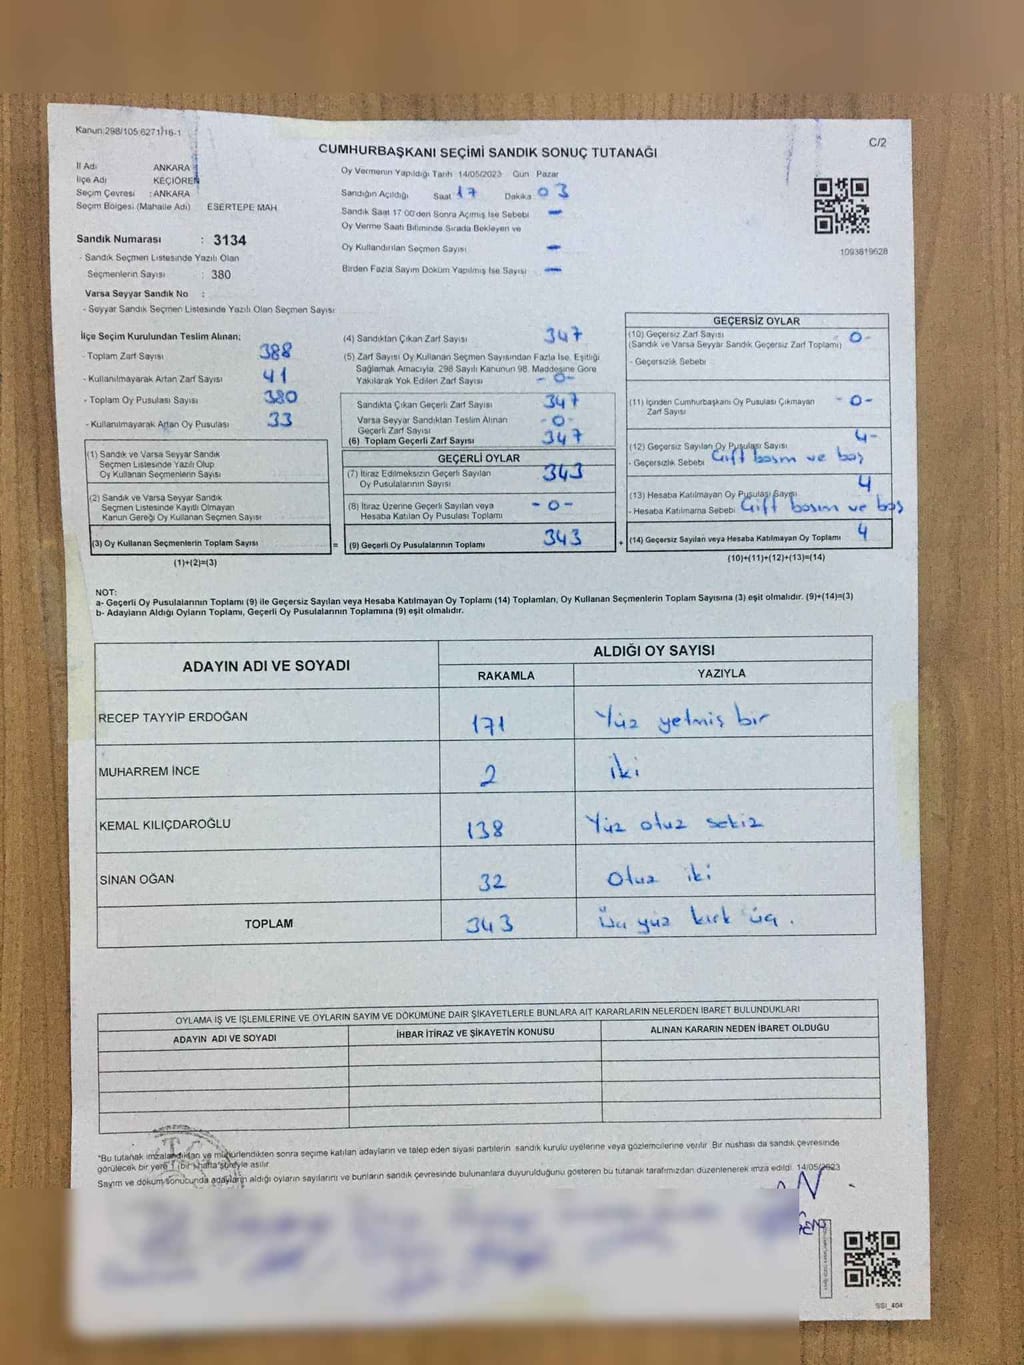 Kanun:298/105 6271/16-1
C/2
CUMHURBAŞKANI SEÇİMİ SANDIK SONUÇ TUTANAĞI
İl Adı ANKARA
İlçe Adı KEÇİÖREN
Seçim Çevresi : ANKARA
Seçim Bölgesi (Mahalle Adı) ESERTEPE MAH.
Sandık Numarası : 3134
- Sandık Seçmen Listesinde Yazılı Olan
Seçmenlerin Sayısı : 380
Varsa Seyyar Sandık No :
- Seyyar Sandık Seçmen Listesinde Yazılı Olan Seçmen Sayısı:
Oy Vermenin Yapıldığı Tarih 14/05/2023 Gün Pazar
Sandığın Açıldığı Saat 17 Dakika 03
Sandık Saat 17:00'den Sonra Açılmış İse Sebebi —
Oy Verme Saati Bitiminde Sırada Bekleyen ve
Oy Kullandırılan Seçmen Sayısı —
Birden Fazla Sayım Döküm Yapılmış İse Sayısı —
1093819628
İlçe Seçim Kurulundan Teslim Alınan;
- Toplam Zarf Sayısı 388
- Kullanılmayarak Artan Zarf Sayısı 41
- Toplam Oy Pusulası Sayısı 380
- Kullanılmayarak Artan Oy Pusulası 33
(1) Sandık ve Varsa Seyyar Sandık
Seçmen Listesinde Yazılı Olup
Oy Kullanan Seçmenlerin Sayısı
(2) Sandık ve Varsa Seyyar Sandık
Seçmen Listesinde Kayıtlı Olmayan
Kanun Gereği Oy Kullanan Seçmen Sayısı
(3) Oy Kullanan Seçmenlerin Toplam Sayısı
(1)+(2)=(3)
=
(4) Sandıktan Çıkan Zarf Sayısı 347
(5) Zarf Sayısı Oy Kullanan Seçmen Sayısından Fazla İse, Eşitliği
Sağlamak Amacıyla, 298 Sayılı Kanunun 98. Maddesine Göre
Yakılarak Yok Edilen Zarf Sayısı -0-
Sandıkta Çıkan Geçerli Zarf Sayısı 347
Varsa Seyyar Sandıktan Teslim Alınan
Geçerli Zarf Sayısı -0-
(6) Toplam Geçerli Zarf Sayısı 347
GEÇERLİ OYLAR
(7) İtiraz Edilmeksizin Geçerli Sayılan
Oy Pusulalarının Sayısı 343
(8) İtiraz Üzerine Geçerli Sayılan veya
Hesaba Katılan Oy Pusulası Toplamı -0-
(9) Geçerli Oy Pusulalarının Toplamı 343
+
GEÇERSİZ OYLAR
(10) Geçersiz Zarf Sayısı
(Sandık ve Varsa Seyyar Sandık Geçersiz Zarf Toplamı) 0-
- Geçersizlik Sebebi
(11) İçinden Cumhurbaşkanı Oy Pusulası Çıkmayan
Zarf Sayısı -0-
(12) Geçersiz Sayılan Oy Pusulası Sayısı 4-
- Geçersizlik Sebebi Çift basım ve boş
(13) Hesaba Katılmayan Oy Pusulası Sayısı 4
- Hesaba Katılmama Sebebi Çift basım ve boş
(14) Geçersiz Sayılan veya Hesaba Katılmayan Oy Toplamı 4
(10)+(11)+(12)+(13)=(14)
NOT:
a- Geçerli Oy Pusulalarının Toplamı (9) ile Geçersiz Sayılan veya Hesaba Katılmayan Oy Toplamı (14) Toplamları, Oy Kullanan Seçmenlerin Toplam Sayısına (3) eşit olmalıdır. (9)+(14)=(3)
b- Adayların Aldığı Oyların Toplamı, Geçerli Oy Pusulalarının Toplamına (9) eşit olmalıdır.
ADAYIN ADI VE SOYADI
ALDIĞI OY SAYISI
RAKAMLA YAZIYLA
RECEP TAYYİP ERDOĞAN 171 Yüz yetmiş bir
MUHARREM İNCE 2 iki
KEMAL KILIÇDAROĞLU 138 Yüz otuz sekiz
SİNAN OĞAN 32 Otuz iki
TOPLAM 343 Üç yüz kırk üç.
OYLAMA İŞ VE İŞLEMLERİNE VE OYLARIN SAYIM VE DÖKÜMÜNE DAİR ŞİKAYETLERLE BUNLARA AİT KARARLARIN NELERDEN İBARET BULUNDUKLARI
ADAYIN ADI VE SOYADI İHBAR İTİRAZ VE ŞİKAYETİN KONUSU ALINAN KARARIN NEDEN İBARET OLDUĞU
*Bu tutanak imzalandıktan ve mühürlendikten sonra seçime katılan adayların ve talep eden siyasi partilerin sandık kurulu üyelerine veya gözlemcilerine verilir. Bir nüshası da sandık çevresinde
görülecek bir yere 1 (bir) hafta süreyle asılır.
Sayım ve döküm sonucunda adayların aldığı oyların sayılarını ve bunların sandık çevresinde bulunanlara duyurulduğunu gösteren bu tutanak tarafımızdan düzenlenerek imza edildi. 14/05/2023
SSI_404